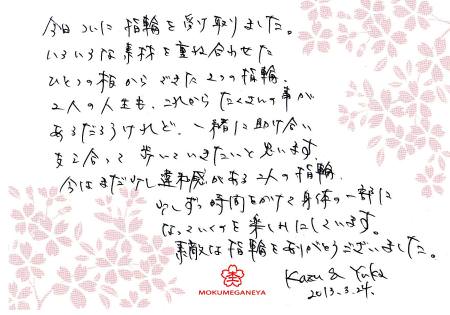 今日ついに指輪を受け取りました。
いろいろな素材を重ね合わせた
ひとつの板からできた2つの指輪。
2人の人生も、これからたくさんの事が
あるだろうけれど、一緒に助け合い
支え合って歩いていきたいと思います。
今はまだ少し違和感がある2人の指輪、
少しずつ時間をかけて身体の一部に
なっていくのを楽しみにしています。
素敵な指輪をありがとうございました。
Kazu & Yuka
2013.3.24.
MOKUMEGANEYA